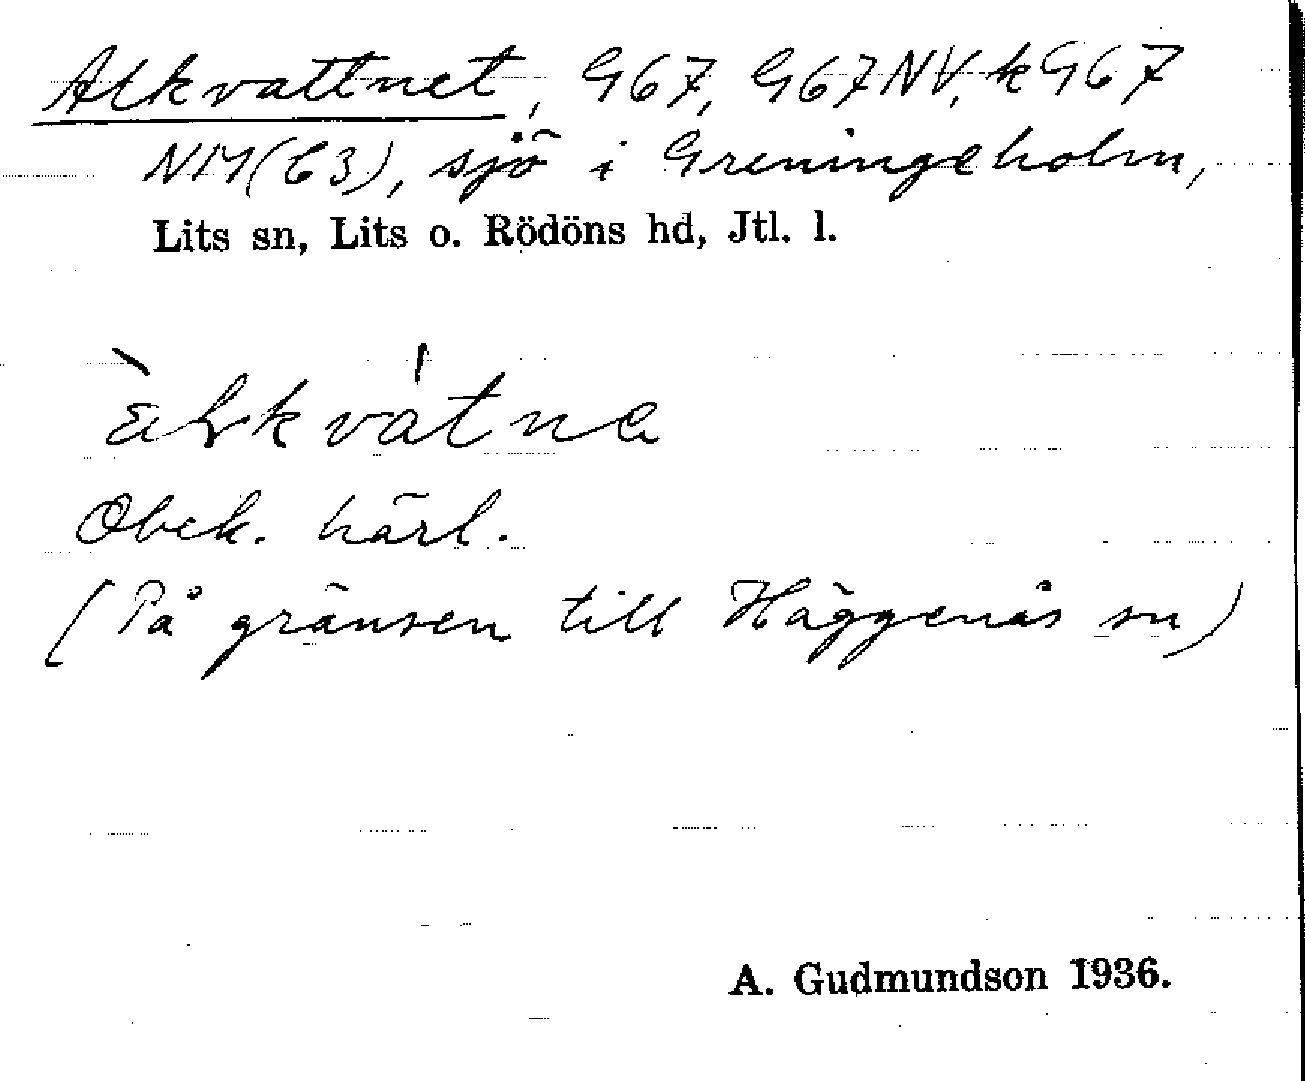 Alkvattnet, G67, G67NV, k G67
NM(63), sjö i Greningeholm,
Lits sn, Lits o. Rödöns hd, Jtl. l.
Obek. härl.
(På gränsen till Häggenås sn)
A. Gudmundson 1936.